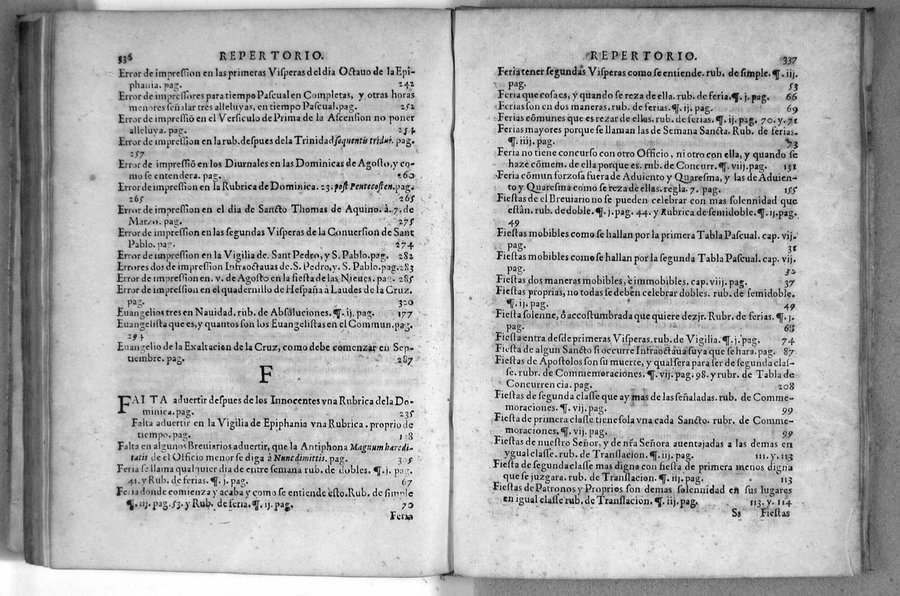 336 REPERTORIO.
Error de impression en las primeras Visperas del dia Octauo de la Epi-
phania. pag. 242
Error de impressores para tiempo Pascual en Completas, y otras horas
menores señalar tres alleluyas, en tiempo Pascual. pag. 252
Error de impressiõ en el Versiculo de Prima de la Ascension no poner
alleluya. pag. 254
Error de impression en la rub. despues dela Trinidad sequentis tridui. pag.
257
Error de impressiõ en los Diurnales en las Dominicas de Agosto, y co-
mo se entendera. pag. 260
Error de impression en la Rubrica de Dominica. 23. post Pentecosten. pag.
265 265
Error de impression en el dia de Sancto Thomas de Aquino. à. 7. de
Marzo. pag. 275
Error de impression en las segundas Visperas de la Conuersion de Sant
Pablo. pag. 274
Error de impression en la Vigilia de. Sant Pedro, y S. Pablo. pag. 282
Errores dos de impression Infraoctauas de. S. Pedro, y. S. Pablo. pag. 283
Error de impression en. v. de Agosto en la fiesta de las Nieues. pag. 285
Error de impression en el quadernillo de Hespaña à Laudes de la Cruz.
pag. 320
Euangelios tres en Nauidad. rub. de Absoluciones. ¶. ij. pag. 177
Euangelista que es, y quantos son los Euangelistas en el Commun. pag.
294
Euangelio de la Exaltacion de la Cruz, como debe comenzar en Sep-
tiembre. pag. 287
F
FALTA aduertir despues de los Innocentes vna Rubrica dela Do-
minica. pag. 235
Falta aduertir en la Vigilia de Epiphania vna Rubrica. proprio de
tiempo. pag.
Falta en algunos Breuiarios aduertir, que la Antiphona Magnum hæredi-
tatis de el Officio menor se diga à Nunc dimittis. pag. 305
Feria se llama qualquier dia de entre semana rub. de dobles. ¶. j. pag.
41. y Rub. de ferias. ¶. j. pag. 67
Feria donde comienza y acaba y como se entiende èsto. Rub. de simple
¶. iij. pag. 53. y Rub. de feria. ¶. ij. pag. 70
Feria
REPERTORIO. 337
Feria tener segundas Visperas como se entiende. rub. de simple. ¶. iij.
pag. 53
Feria que cosa es, y quando se reza de ella. rub. de feria. ¶. j. pag. 66
Ferias son en dos maneras. rub. de ferias. ¶. ij. pag. 69
Ferias cõmunes que es rezar de ellos. rub. de ferias. ¶. ij. pag. 70. y. 71
Ferias mayores porque se llaman las de Semana Sancta. Rub. de ferias.
¶. iiij. pag. 73
Feria no tiene concurso con otro Officio, ni otro con ella, y quando se
haze cõmem. de ella porque es. rub. de Concurr. ¶. viij. pag. 131
Feria cõmun forzosa fuera de Aduiento y Quaresma, y las de Aduien-
to y Quaresma como se reza de ellas. regla. 7. pag. 155
Fiestas de el Breuiario no se pueden celebrar con mas solennidad que
están. rub. de doble. ¶. j. pag. 44. y Rubrica de semidoble. ¶. ij. pag.
49
Fiestas mobibles como se hallan por la primera Tabla Pascual. cap. vij.
pag. 31
Fiestas mobibles como se hallan por la segunda Tabla Pascual. cap. vij.
pag. 32
Fiestas dos maneras mobibles, è immobibles. cap. viij. pag. 37
Fiestas proprias, no todas se deben celebrar dobles. rub. de semidoble.
¶. ij. pag. 49
Fiesta solenne, ò accostumbrada que quiere dezir. Rubr. de ferias. ¶. j.
pag. 68
Fiesta entra desde primeras Visperas. rub. de Vigilia. ¶. j. pag. 74
Fiesta de algun Sancto si occurre Infraoctaua suya que se hara. pag. 87
Fiestas de Apostolos son su muerte, y qual sera para ser de segunda clas-
se. rubr. de Commemoraciones. ¶. vij. pag. 98. y rubr. de Tabla de
Concurrencia. pag. 208
Fiestas de segunda classe que ay mas de las señaladas. rub. de Comme-
moraciones. ¶. vij. pag. 99
Fiesta de primera classe tiene sola vna cada Sancto. rubr. de Comme-
moraciones. ¶. vij. pag. 99
Fiestas de nuestro Señor, y de nra Señora auentajadas a las demas en
ygual classe. rub. de Translacion. ¶. iij. pag. 111. y. 113
Fiesta de segunda classe mas digna con fiesta de primera menos digna
que se juzgara. rub. de Translacion. ¶. iij. pag. 113
Fiestas de Patronos y Proprios son demas solennidad en sus lugares
en igual classe rub. de Translacion. ¶. iij. pag. 113. y. 114
Ss Fiestas